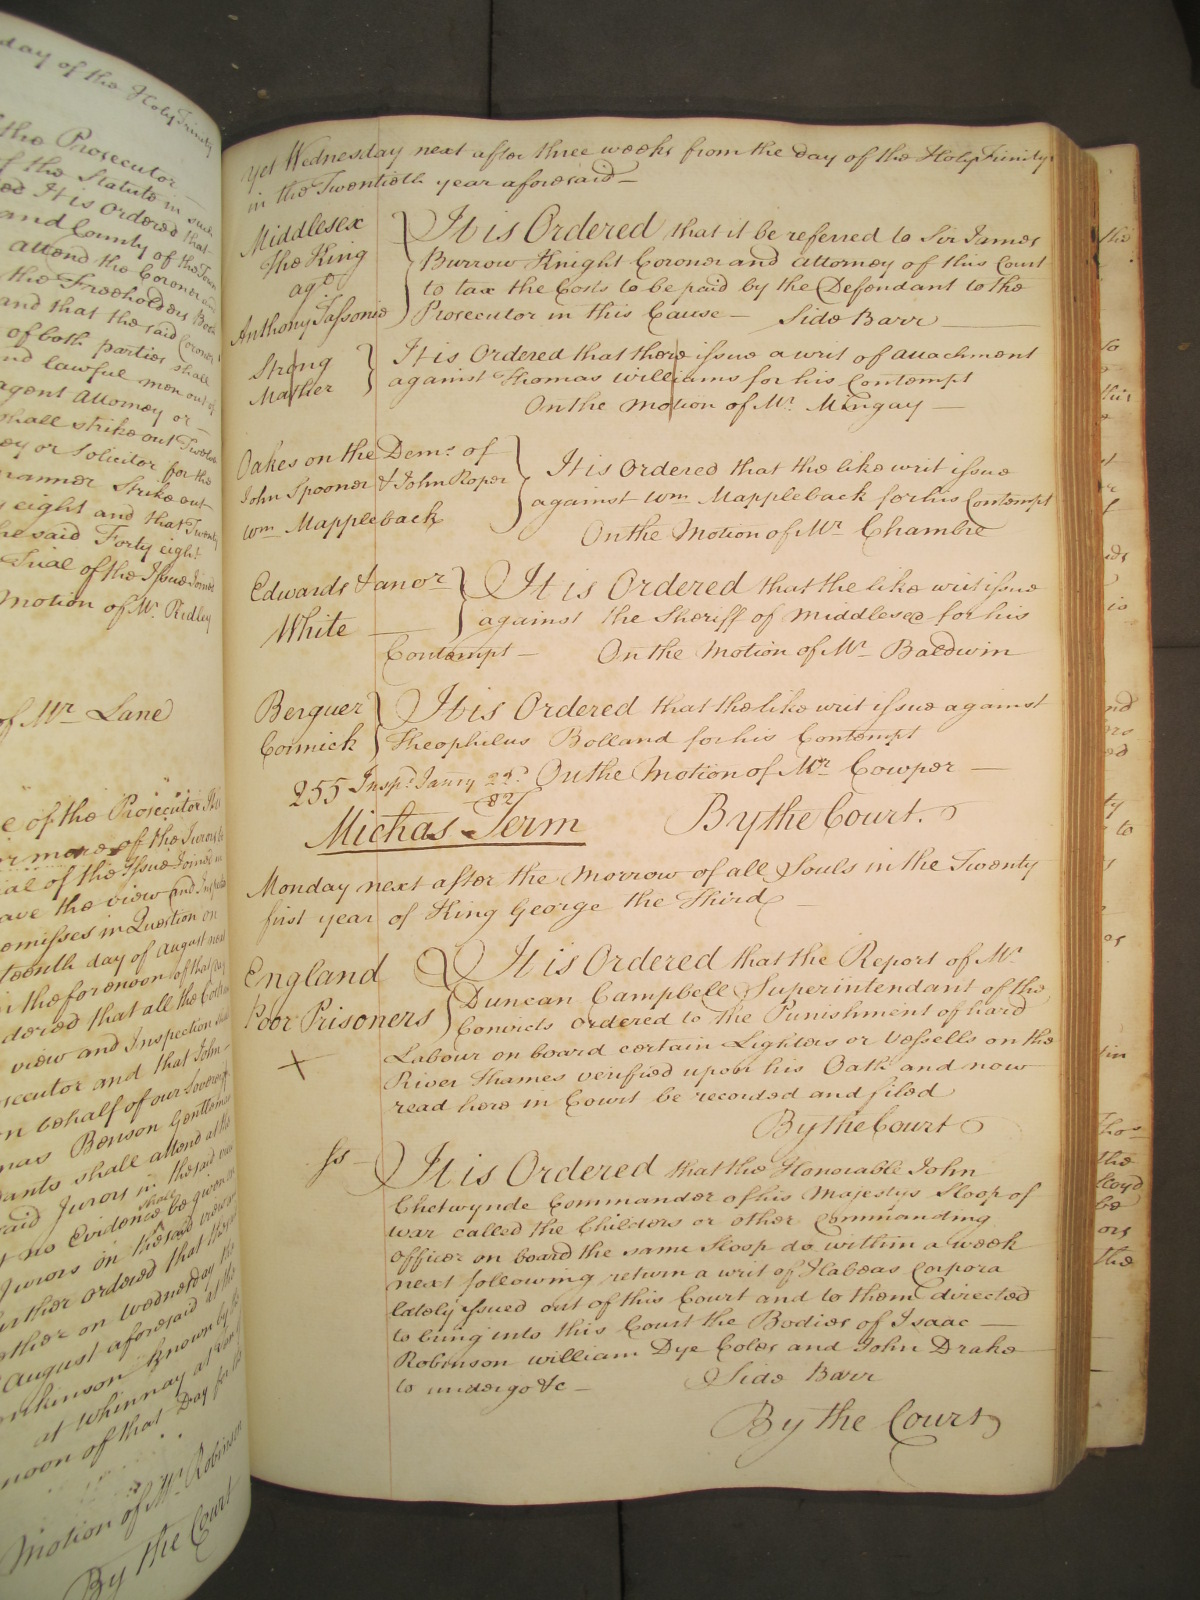 day of the Holy Trinity
the Prosecutor
of the Statute in such
It is Ordered that
and County of the Town
attend the Coroner and
the Freeholders Book
and that the said Coroner
of both parties shall
and lawful men out of
agent Attorney or
shall strike out Twelve
or Solicitor for the
manner Strike out
eight and that Twenty
he said Forty eight
Trial of the Issue Joined
Motion of Mr. Ridley
of Mr Lane
of the Prosecutor
or more of the Jurors
of the Issue Joined
have the view and
in Question on
day of August next
in the forenoon of that day
that all the Costs
view and Inspection
and that John
on behalf of our Sovereign
Benson Gentlemen
shall attend at the
said Jurors in the said view
no Evidence be given
Jurors on the said view
further ordered that they
on Wednesday the
August aforesaid at the
known by the
at Whinnay at
noon of that Day for the
Motion of Mr. Robinson
By the Court
yet Wednesday next after three weeks from the day of the Holy Trinity
in the Twentieth year aforesaid
Middlesex
The King
agt
Anthony Tassonie
It is Ordered that it be referred to Sir James
Burrow Knight Coroner and Attorney of this Court
to tax the Costs to be paid by the Defendant to the
Prosecutor in this Cause — Side Barr
Strong
Mather
It is Ordered that there issue a writ of attachment
against Thomas Williams for his Contempt
On the motion of Mr. Mingay —
Oakes on the Dems. of
John Spooner & John Roper
Wm Mappleback
It is Ordered that the like writ issue
against Wm Mappleback for his Contempt
On the Motion of Mr Chambre
Edwards & anor
White
It is Ordered that the like writ issue
against the Sheriff of Middlesex for his
Contempt — On the Motion of Mr Baldwin
Berguer
Cormick
It is Ordered that the like writ issue against
Theophilus Bolland for his Contempt
255 Insp.d Janry 82 On the Motion of Mr Cowper —
Michas Term By the Court.
Monday next after the Morrow of all Souls in the Twenty
first year of King George the Third —
England
Poor Prisoners
It is Ordered that the Report of Mr
Duncan Campbell Superintendant of the
Convicts ordered to the Punishment of hard
Labour on board certain Lighters or Vessells on the
River Thames verified upon his Oath and now
read here in Court be recorded and filed
By the Court
ss — It is Ordered that the Honorable John
Chetwynde Commander of his Majestys Sloop of
war called the Childers or other Commanding
Officer on board the same Sloop do within a week
next following return a writ of Habeas Corpora
lately issued out of this Court and to them directed
to bring into this Court the Bodies of Isaac —
Robinson William Dye Coles and John Drake
to undergo &c — Side Barr
By the Court